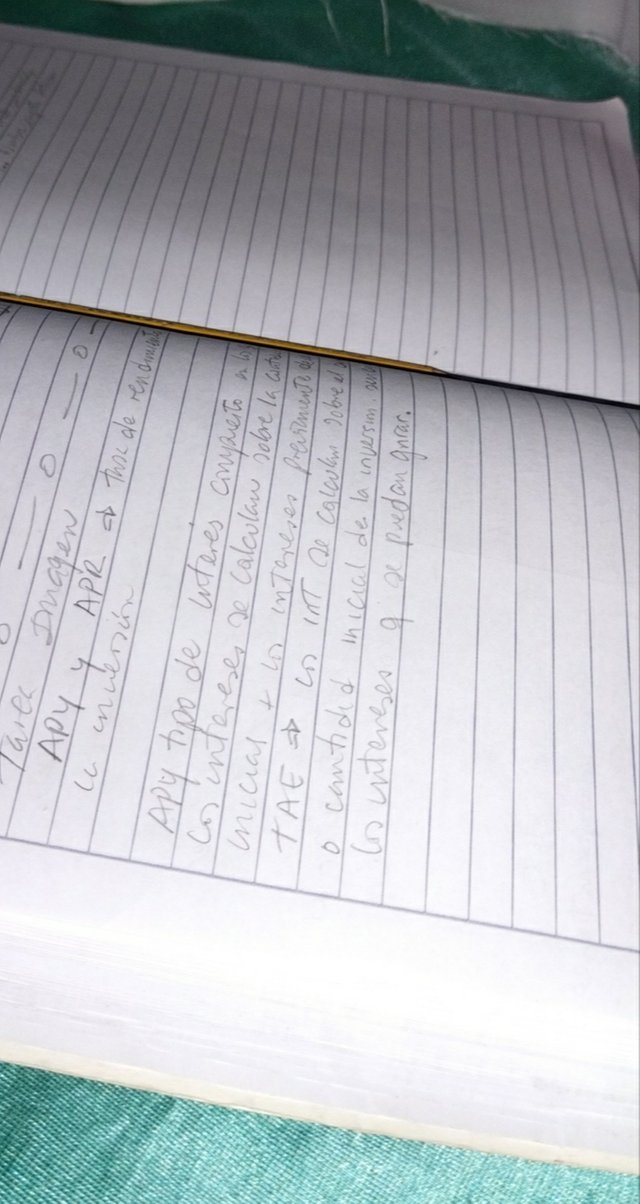 Tarea Imagen
APY y APR ⇒ tasa de rendimient
la inversión
APY tipo de interés compuesto en los
Los intereses se calculan sobre la cantid
inicial + los intereses previamente
TAE ⇒ los INT se calculan sobre el
o cantidad inicial de la inversion.
los intereses q se puedan ganar.